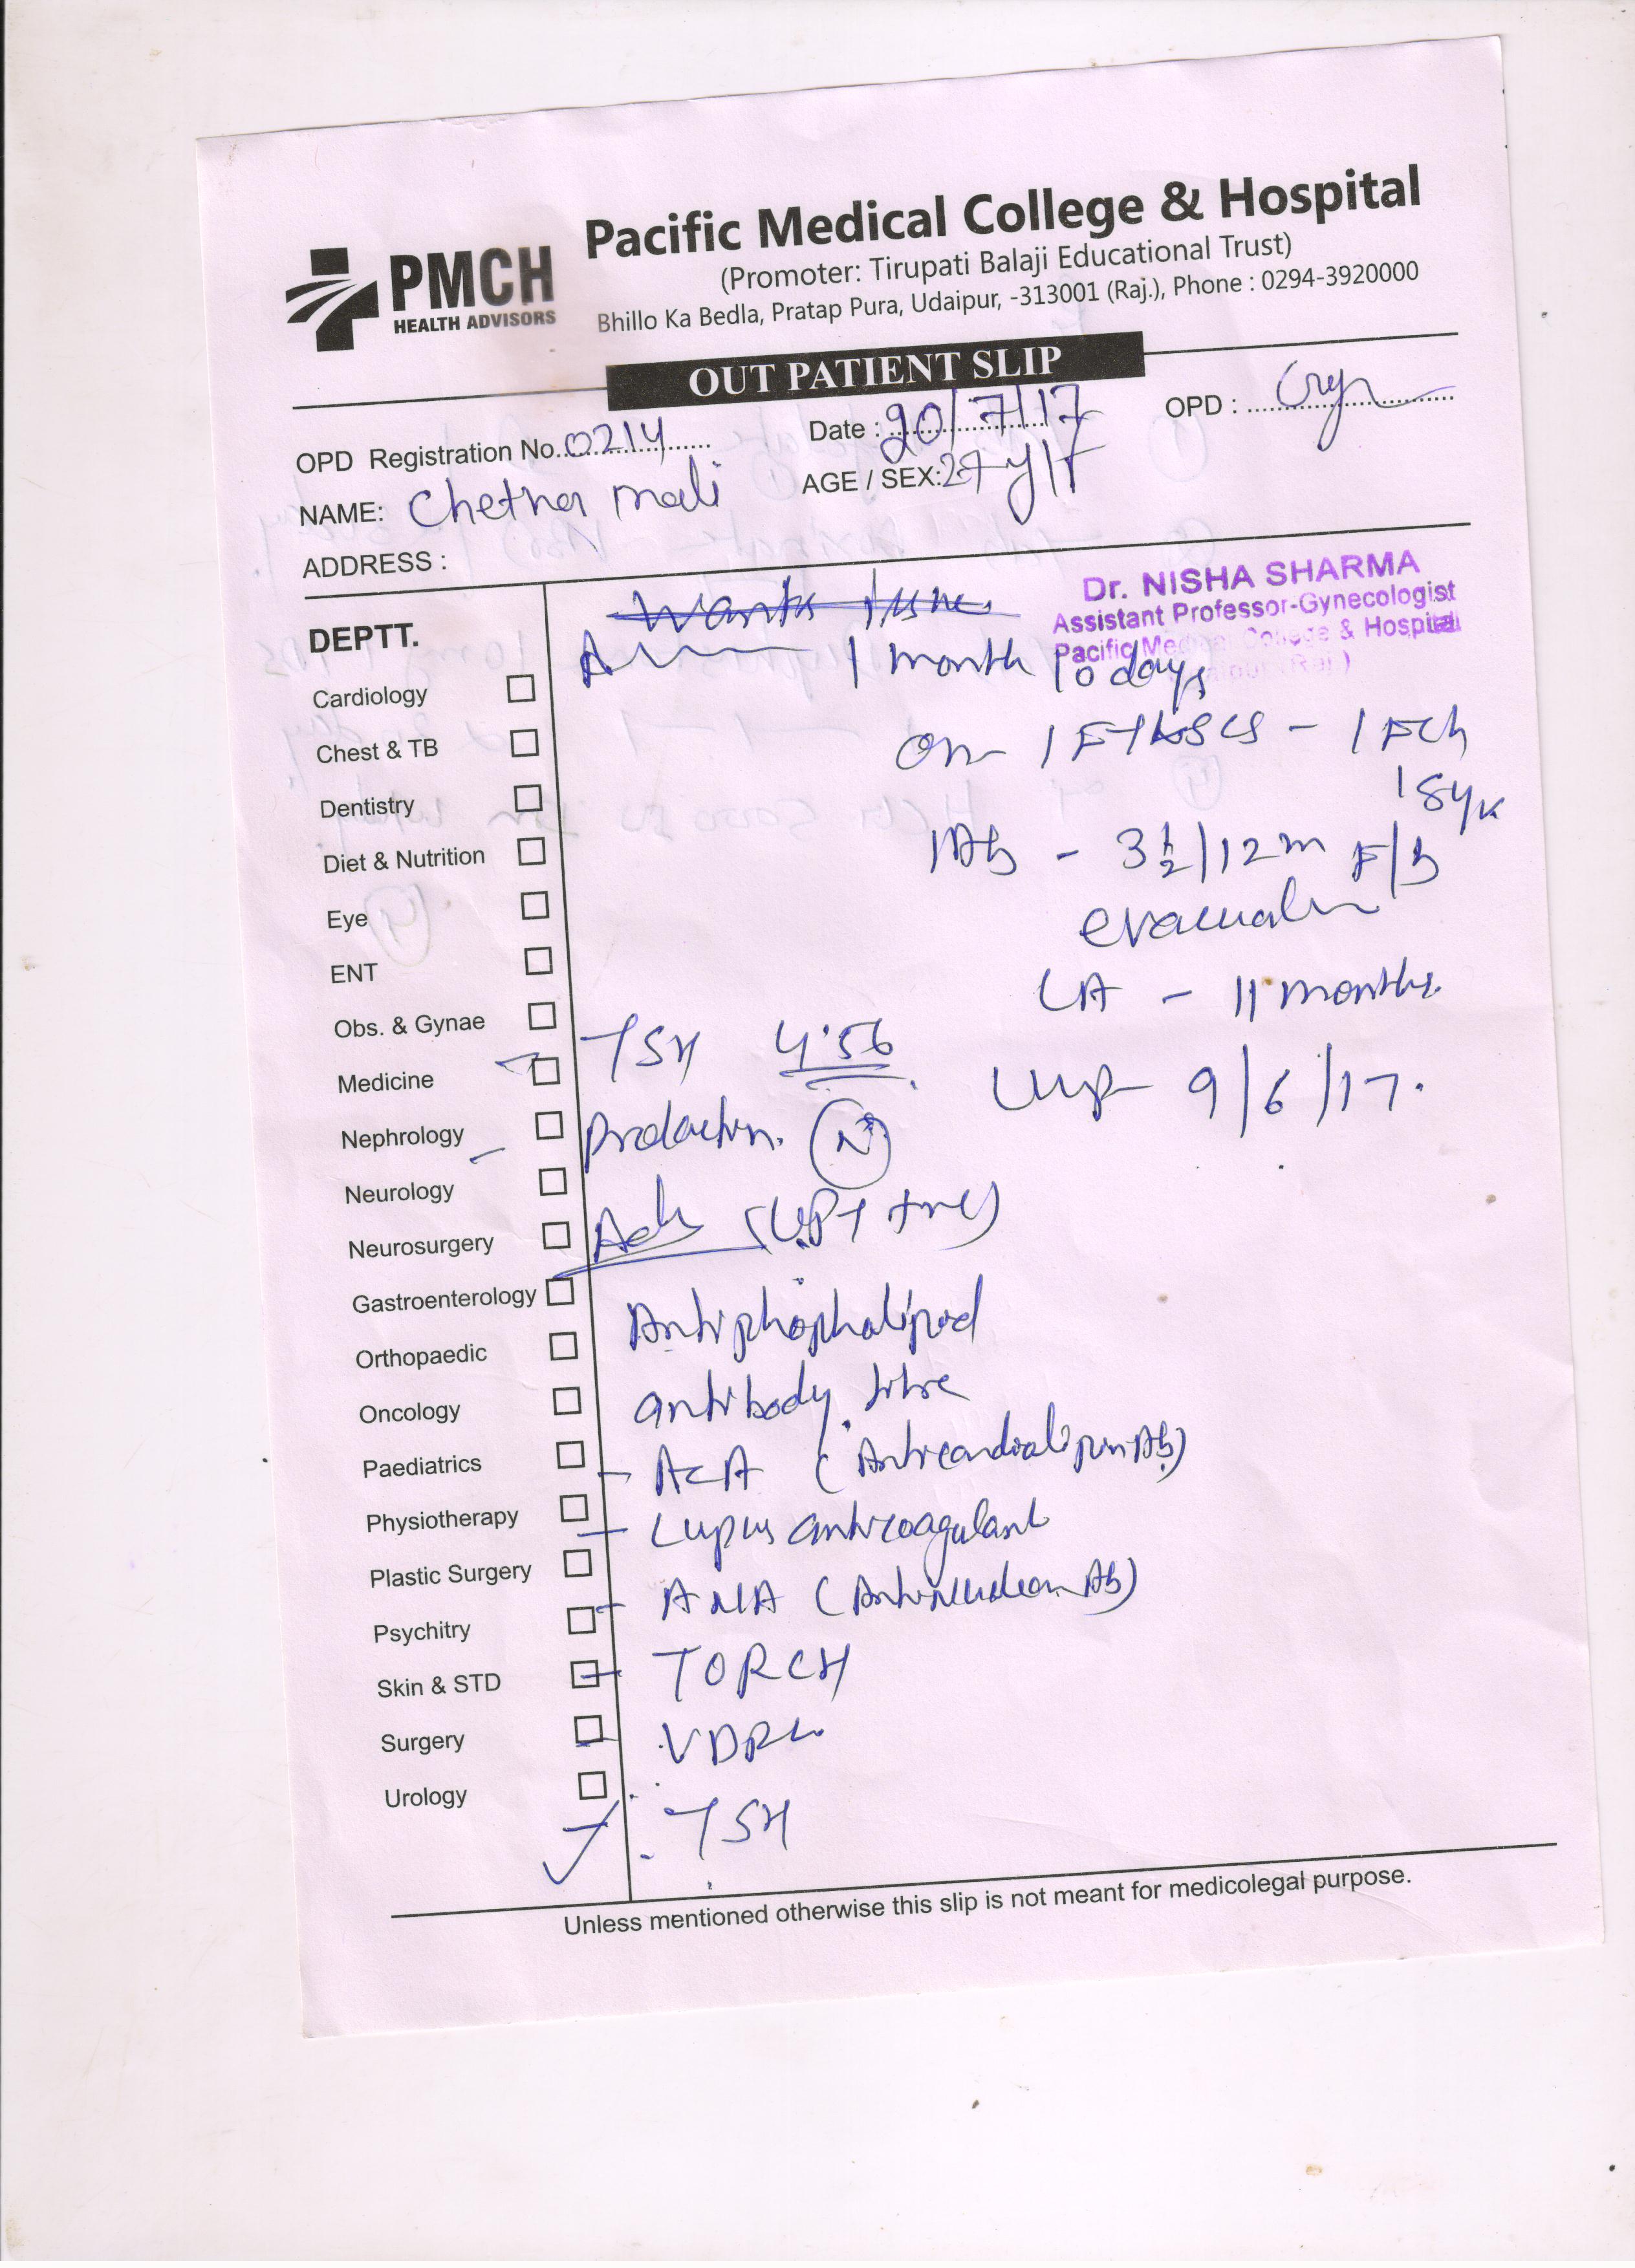 PMCH
HEALTH ADVISORS
Pacific Medical College & Hospital
(Promoter: Tirupati Balaji Educational Trust)
Bhillo Ka Bedla, Pratap Pura, Udaipur, -313001 (Raj.), Phone : 0294-3920000
OUT PATIENT SLIP
OPD Registration No. 0214 Date : 20/7/17 OPD :
NAME: Chetna mali AGE / SEX: 27 y/F
ADDRESS :
Dr. NISHA SHARMA
Assistant Professor-Gynecologist
Pacific Medical College & Hospital
DEPTT.
Cardiology
Chest & TB
Dentistry
Diet & Nutrition
Eye
ENT
Obs. & Gynae
Medicine
Nephrology
Neurology
Neurosurgery
Gastroenterology
Orthopaedic
Oncology
Paediatrics
Physiotherapy
Plastic Surgery
Psychitry
Skin & STD
Surgery
Urology
1 month 10 days
1 FTLSCS - 1 FCh
1Ab - 3 1/2 /12 m F/b
LA - 11 months.
TSH 4.56
LMP 9/6/17.
Prolactin. N
Adv (UPT +ve)
Antiphopholipid
antibody titre
- ACA (Anticardiolipin Ab)
- Lupus anticoagulant
- ANA (Antinuclear Ab)
- TORCH
- VDRL
- TSH
Unless mentioned otherwise this slip is not meant for medicolegal purpose.